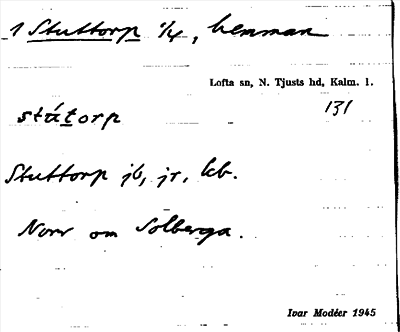 1 Stuttorp 1/4, hemman
Lofta sn, N. Tjusts hd, Kalm. l.
131
státorp
Stuttorp jb, jr, kb.
Norr om Solberga.
Ivar Modéer 1945